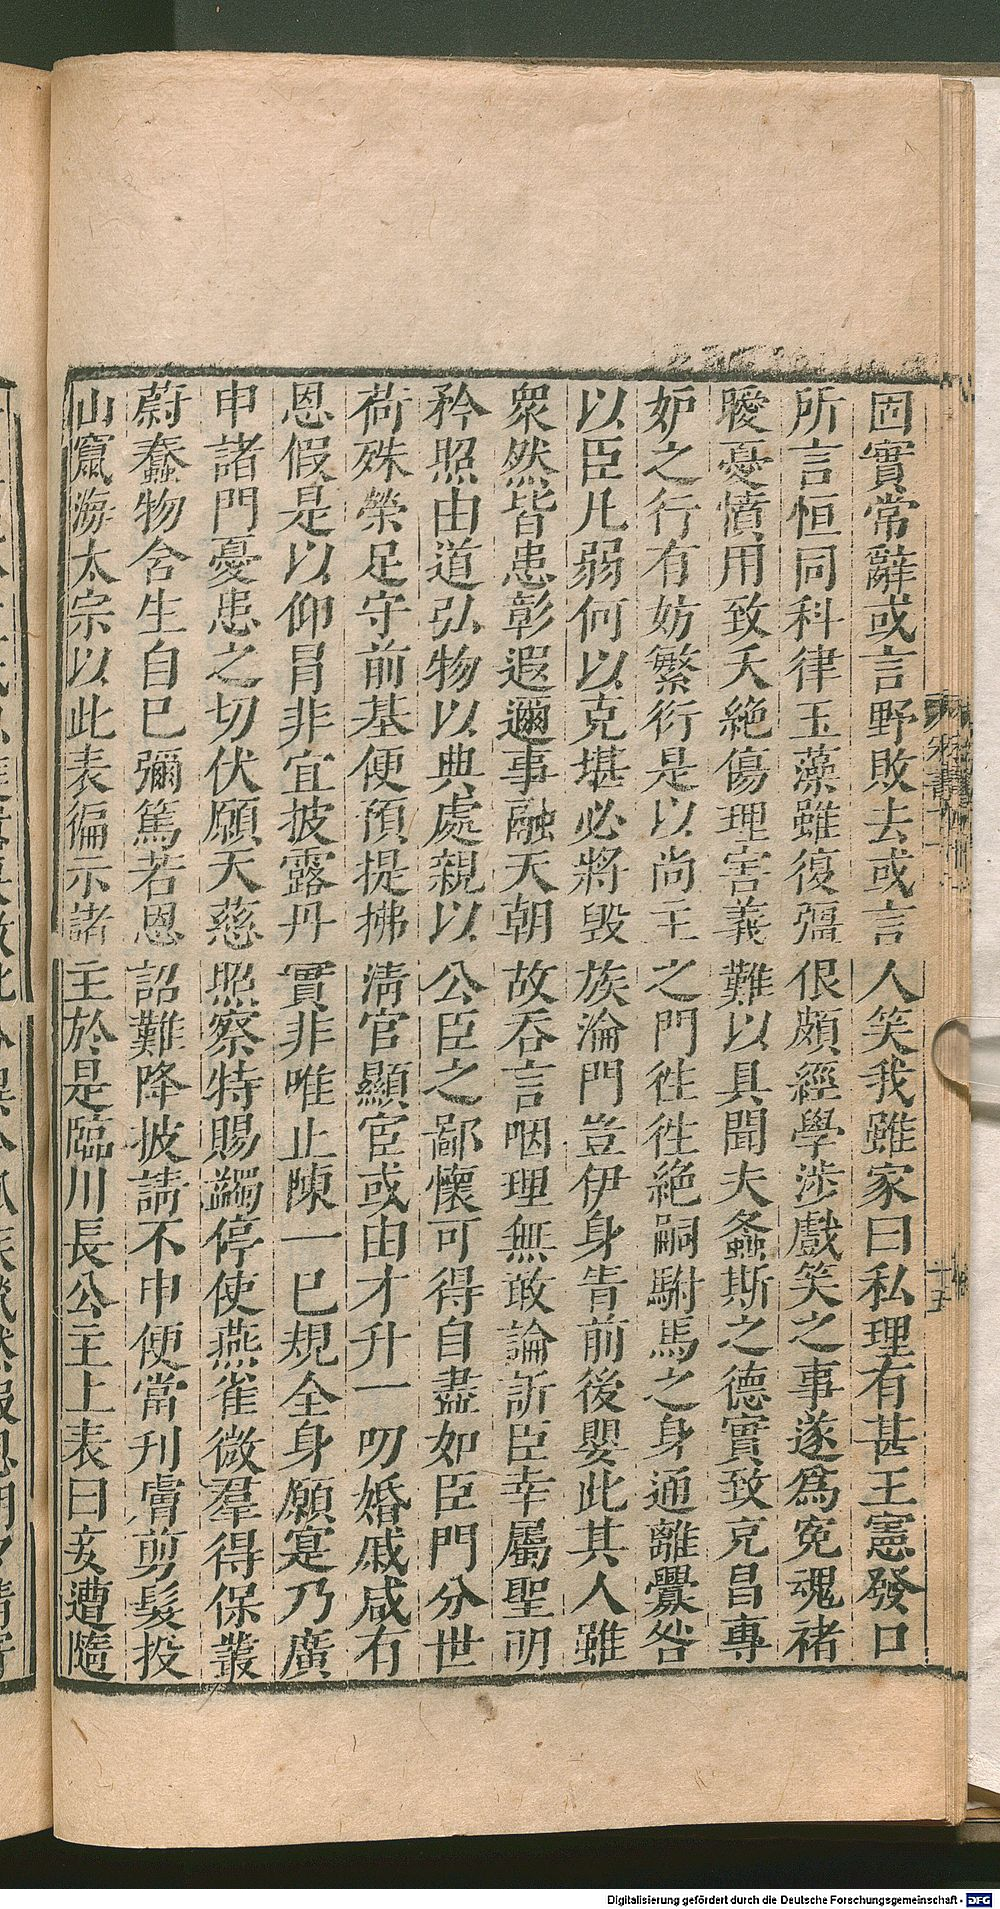 固實常辭或言野敗去或言人笑我雖家曰私理有甚王憲發口
所言恒同科律王藻雖復彊佷頗經學涉戲笑之事遂爲冤魂褚
曖憂憤用致夭絕傷理害義難以具聞夫螽斯之德實致克昌專
妒之行有妨繁衍是以尚主之門往往絕嗣駙馬之身通離釁咎
以臣凡弱何以克堪必將毀族淪門豈伊身眚前後嬰此其人雖
衆然皆患彰遐邇事融天朝故吞言咽理無敢論訴臣幸屬聖明
矜照由道弘物以典處親以公臣之鄙懷可得自盡如臣門分世
荷殊榮足守前基便預提拂清官顯宦或由才升一叨婚戚咸有
恩假是以仰冒非宜披露丹實非唯止陳一已規全身願寔乃廣
申諸門憂患之切伏願天慈照察特賜蠲停使燕雀微羣得保叢
蔚蠢物含生自已彌篤若恩詔難降披請不申便當刊膚剪髮投
山竄海太宗以此表徧示諸主於是臨川長公主上表曰妾遭隨
Digitalisierung gefördert durch die Deutsche Forschungsgemeinschaft - DFG